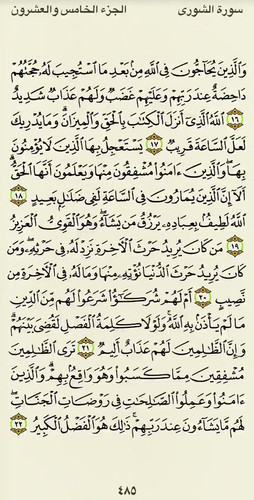 سورة الشورى
الجزء الخامس والعشرون
وَٱلَّذِينَ يُحَآجُّونَ فِى ٱللَّهِ مِنۢ بَعْدِ مَا ٱسْتُجِيبَ لَهُۥ حُجَّتُهُمْ
دَاحِضَةٌ عِندَ رَبِّهِمْ وَعَلَيْهِمْ غَضَبٌ وَلَهُمْ عَذَابٌ شَدِيدٌ
١٦ ٱللَّهُ ٱلَّذِىٓ أَنزَلَ ٱلْكِتَٰبَ بِٱلْحَقِّ وَٱلْمِيزَانَ ۗ وَمَا يُدْرِيكَ
لَعَلَّ ٱلسَّاعَةَ قَرِيبٌ ١٧ يَسْتَعْجِلُ بِهَا ٱلَّذِينَ لَا يُؤْمِنُونَ
بِهَا ۖ وَٱلَّذِينَ ءَامَنُوا۟ مُشْفِقُونَ مِنْهَا وَيَعْلَمُونَ أَنَّهَا ٱلْحَقُّ ۗ
أَلَآ إِنَّ ٱلَّذِينَ يُمَارُونَ فِى ٱلسَّاعَةِ لَفِى ضَلَٰلٍۭ بَعِيدٍ ١٨
ٱللَّهُ لَطِيفٌۢ بِعِبَادِهِۦ يَرْزُقُ مَن يَشَآءُ ۖ وَهُوَ ٱلْقَوِىُّ ٱلْعَزِيزُ
١٩ مَن كَانَ يُرِيدُ حَرْثَ ٱلْءَاخِرَةِ نَزِدْ لَهُۥ فِى حَرْثِهِۦ ۖ وَمَن
كَانَ يُرِيدُ حَرْثَ ٱلدُّنْيَا نُؤْتِهِۦ مِنْهَا وَمَا لَهُۥ فِى ٱلْءَاخِرَةِ مِن
نَّصِيبٍ ٢٠ أَمْ لَهُمْ شُرَكَٰٓؤُا۟ شَرَعُوا۟ لَهُم مِّنَ ٱلدِّينِ
مَا لَمْ يَأْذَنۢ بِهِ ٱللَّهُ ۚ وَلَوْلَا كَلِمَةُ ٱلْفَصْلِ لَقُضِىَ بَيْنَهُمْ ۗ
وَإِنَّ ٱلظَّٰلِمِينَ لَهُمْ عَذَابٌ أَلِيمٌ ٢١ تَرَى ٱلظَّٰلِمِينَ
مُشْفِقِينَ مِمَّا كَسَبُوا۟ وَهُوَ وَاقِعٌۢ بِهِمْ ۗ وَٱلَّذِينَ
ءَامَنُوا۟ وَعَمِلُوا۟ ٱلصَّٰلِحَٰتِ فِى رَوْضَاتِ ٱلْجَنَّاتِ ۖ
لَهُم مَّا يَشَآءُونَ عِندَ رَبِّهِمْ ۚ ذَٰلِكَ هُوَ ٱلْفَضْلُ ٱلْكَبِيرُ ٢٢
٤٨٥